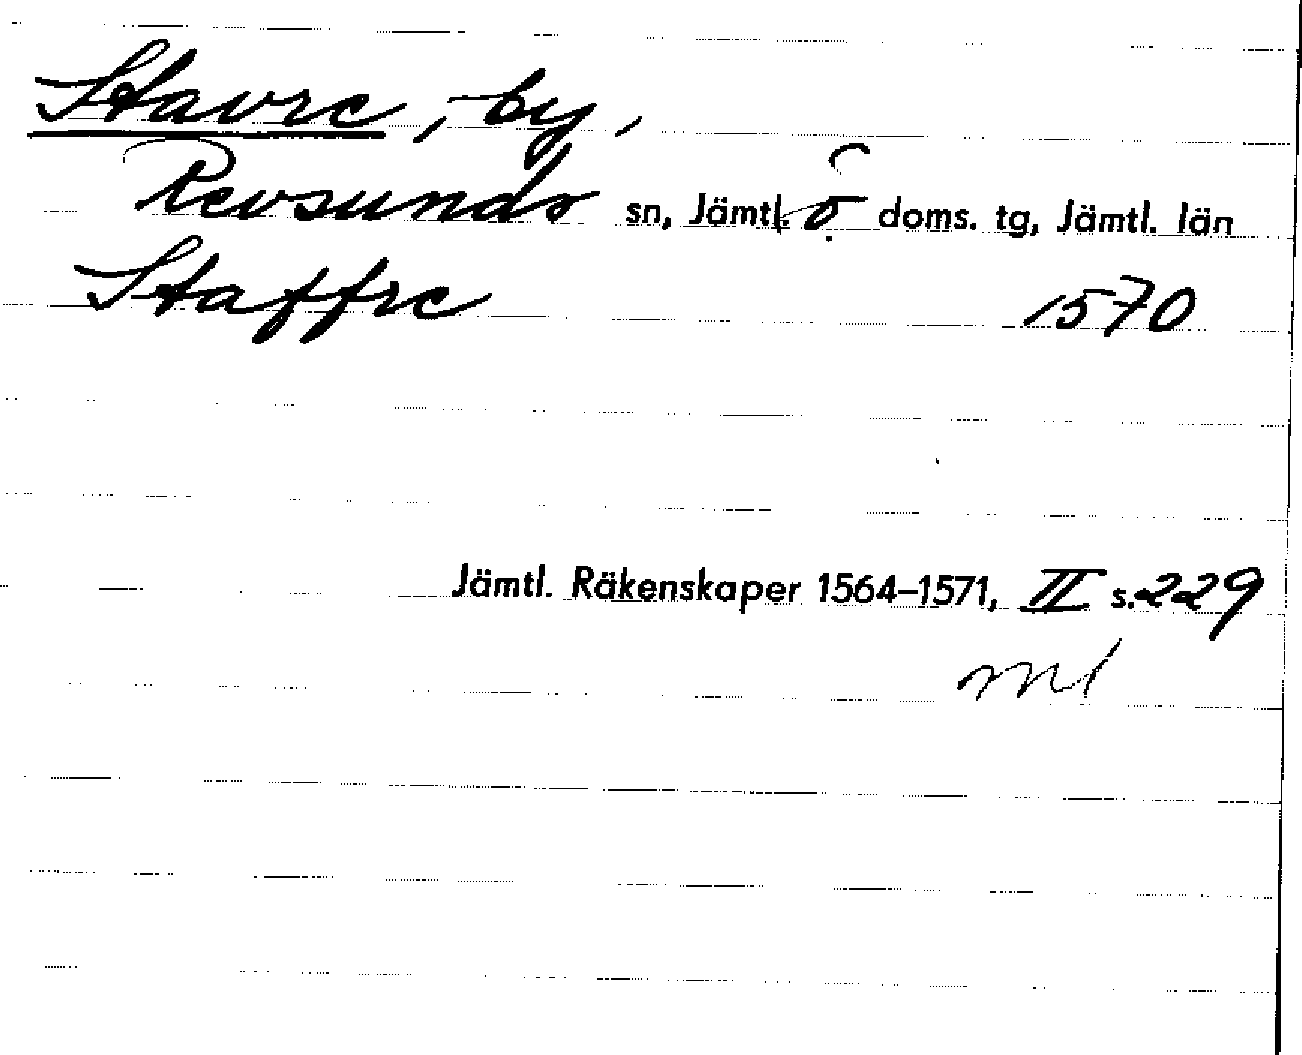 Stavre, by,
Revsunds sn, Jämtl. ö doms. tg, Jämtl. län
Staffre 1570
Jämtl. Räkenskaper 1564–1571, II s. 229